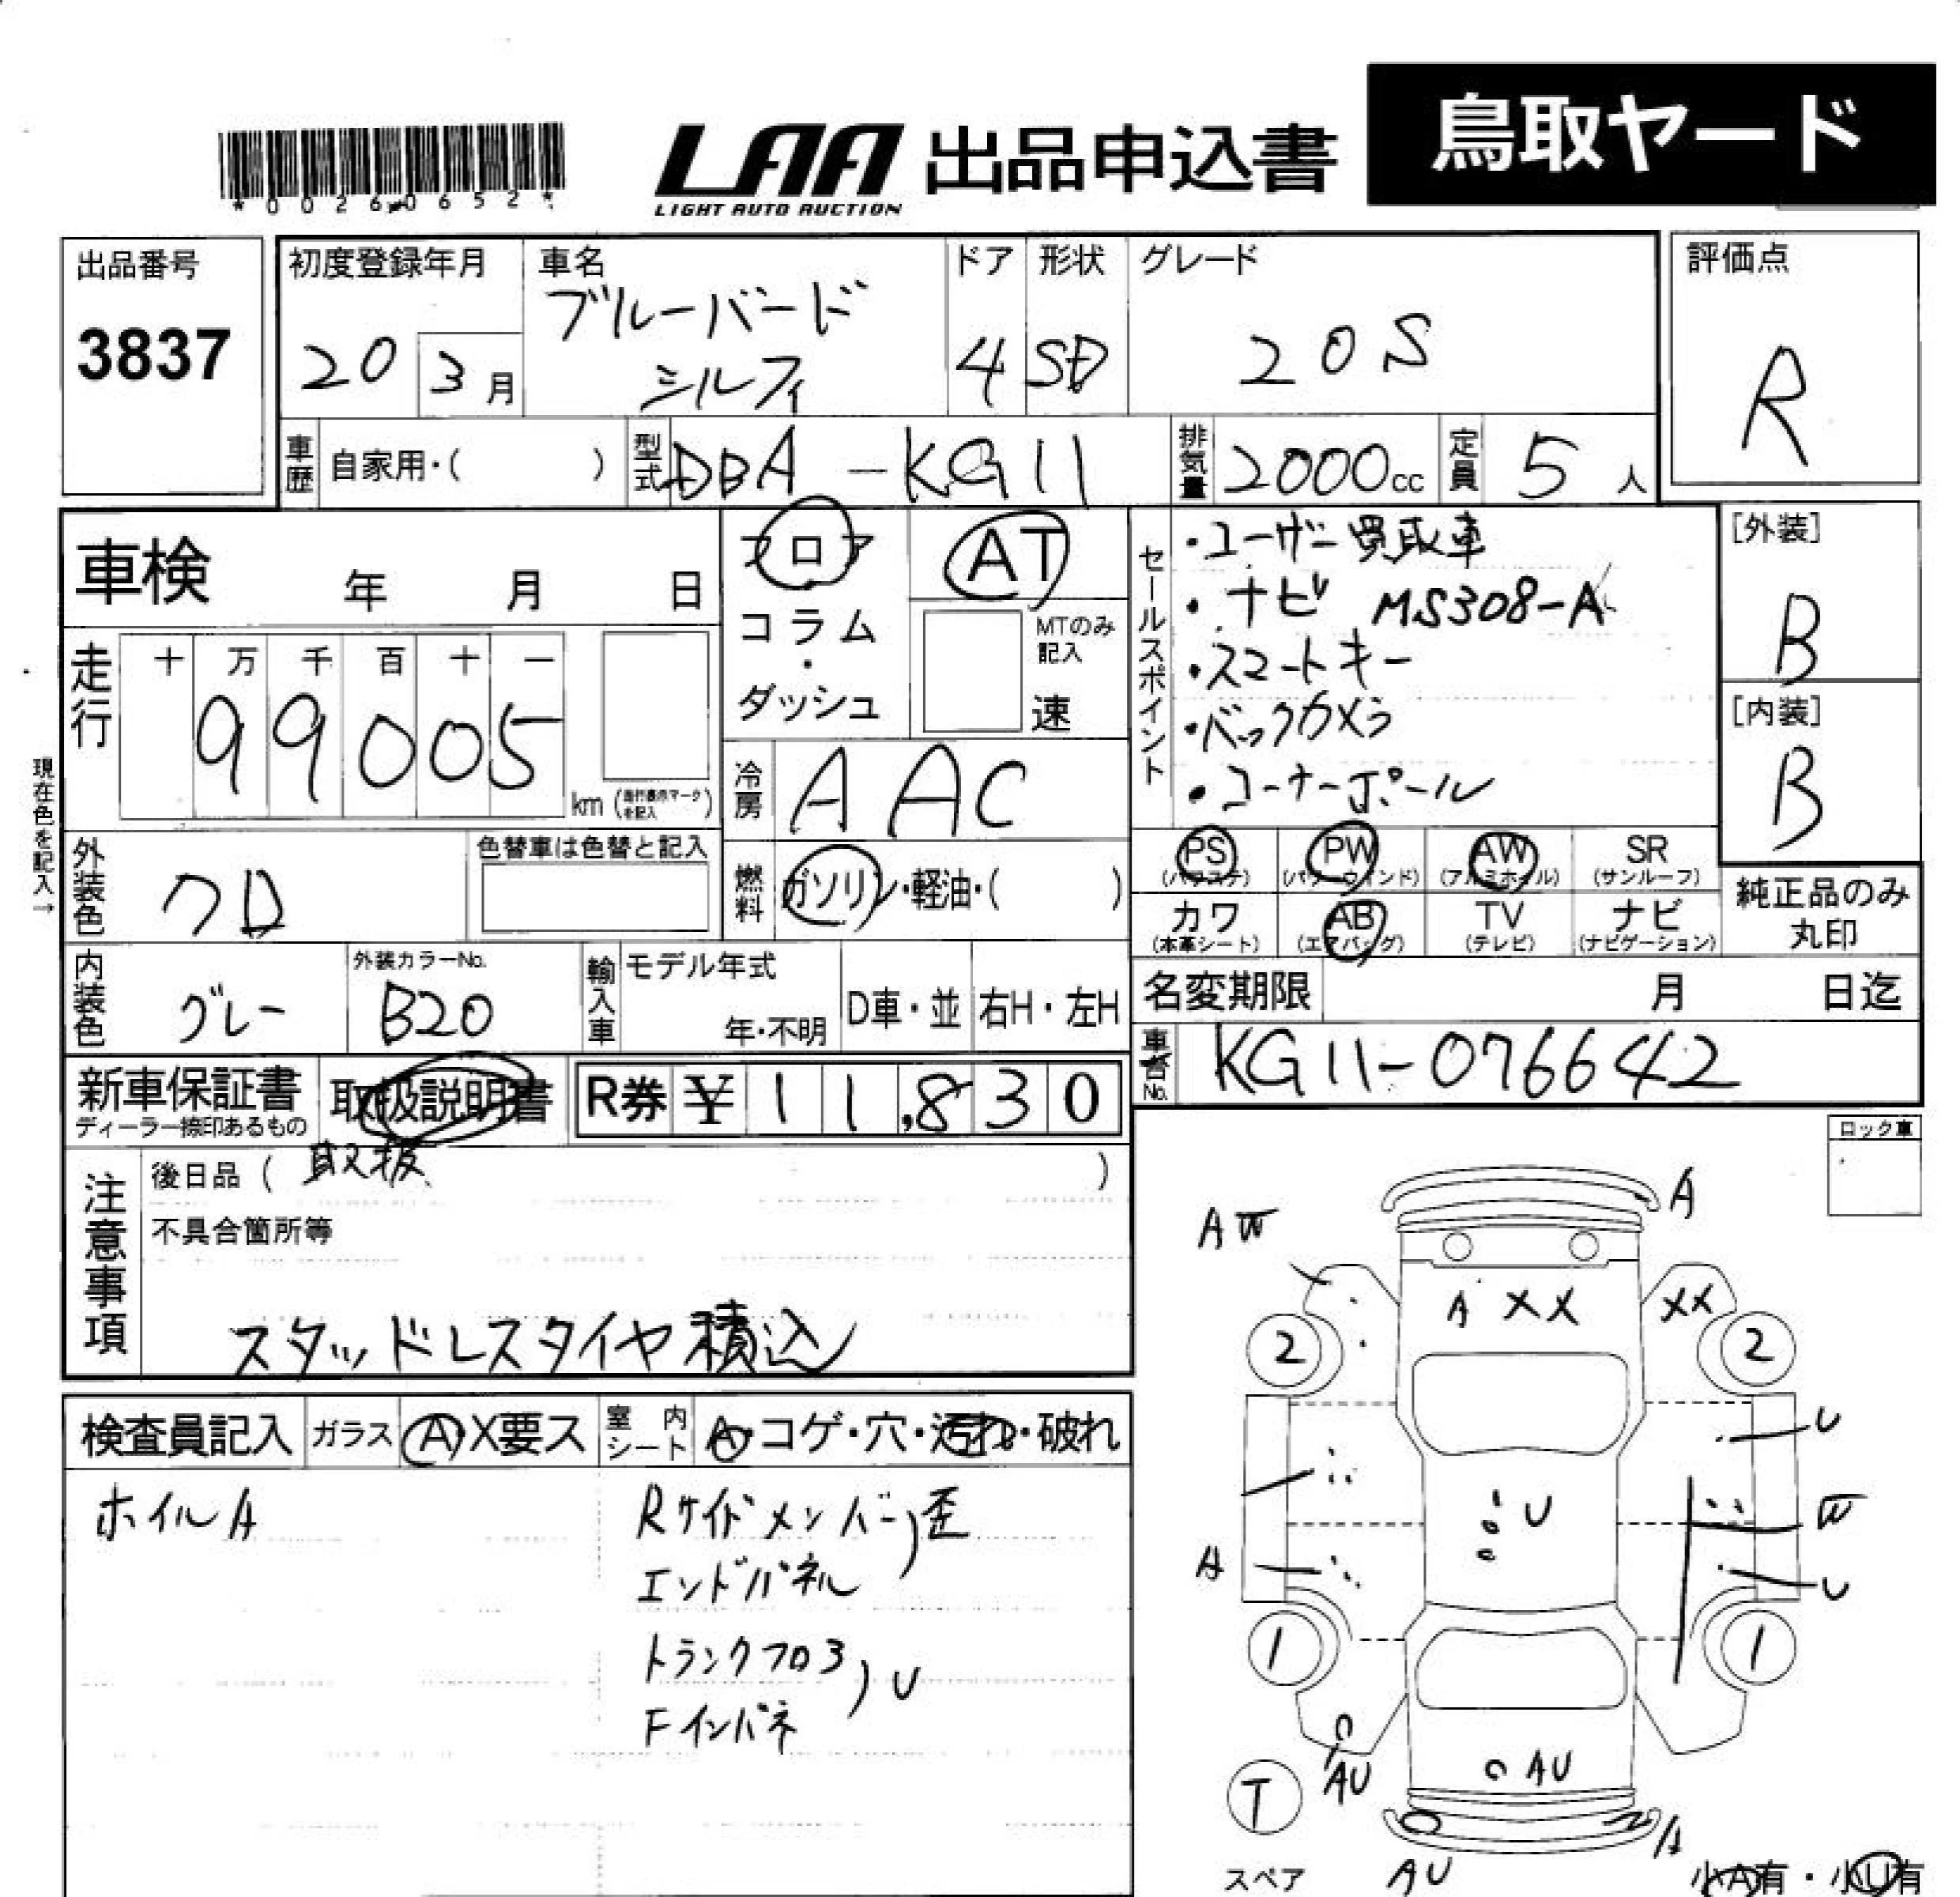 鳥取ヤード
LAA 出品申込書
LIGHT AUTO AUCTION
*00260652*
出品番号 初度登録年月 車名 ドア 形状 グレード 評価点
3837 20 3月 ブルーバード シルフィ 4 SD 20S R
車歴 自家用・( ) 型式 DBA-KG11 排気量 2000cc 定員 5人
車検 年 月 日
フロア AT
コラム・ダッシュ
MTのみ記入
速
セールスポイント
・ユーザー買取車
・ナビ MS308-A
・スマートキー
・バックカメラ
・コーナーポール
[外装]
B
[内装]
B
走行 十 万 千 百 十 一
99005 km
現在色を記入→
冷房 AAC
外装色 クロ 色替車は色替と記入
燃料 ガソリン・軽油・( )
PS PW AW SR
(パワステ) (パワーウィンド) (アルミホイル) (サンルーフ)
カワ AB TV ナビ
(本革シート) (エアバッグ) (テレビ) (ナビゲーション)
純正品のみ
丸印
内装色 グレー 外装カラーNo. B20
輸入車 モデル年式 年・不明 D車・並 右H・左H
名変期限 月 日迄
車台No. KG11-076642
新車保証書 取扱説明書 R券 ¥11,830
ディーラー捺印あるもの
注意事項
後日品( 取扱 )
不具合箇所等
スタッドレスタイヤ積込
ロック車
検査員記入 ガラス A X要ス 室内シート A・コゲ・穴・汚れ・破れ
ホイルA
Rサイドメンバー
エンドパネル
歪
トランクフロ3
Fインパネ
U
A
AW
A XX XX
2 2
U
U W
A U
1 1
AU
AU
T
A
スペア AU 小A有・小U有